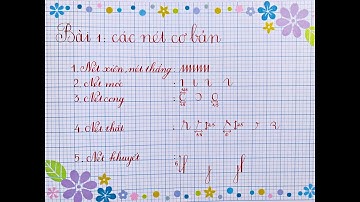 Bài 1: các nét cơ bản
1. Nét xiên, nét thẳng:
2. Nét móc :
3. Nét cong :
4. Nét thắt :
5. Nét khuyết :